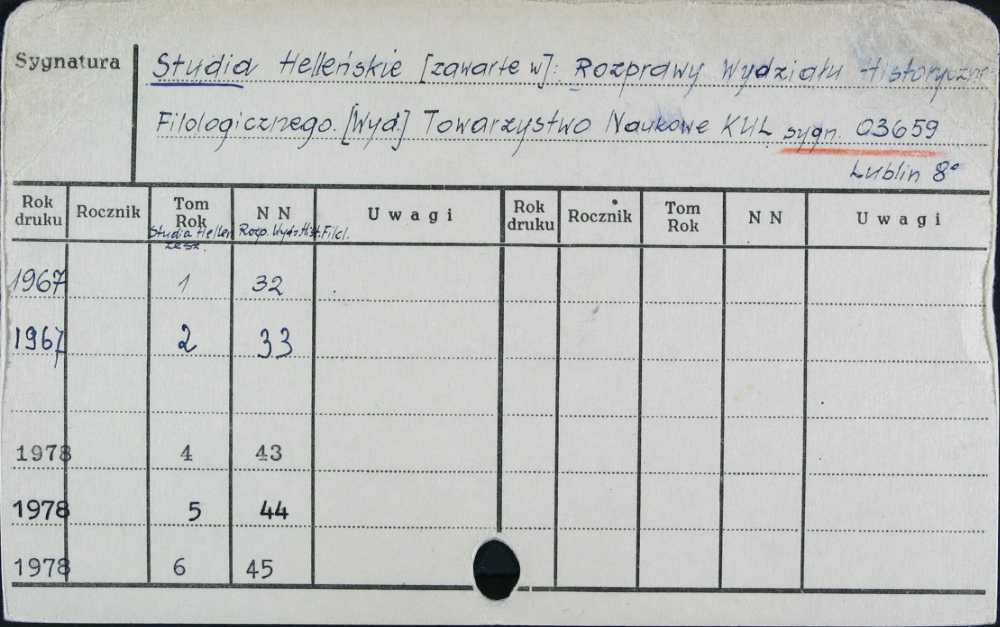 Sygnatura
Studia Helleńskie [zawarte w]: Rozprawy Wydziału Historyczno
Filologicznego. [Wyd.] Towarzystwo Naukowe KUL sygn. 03659
Lublin 8°
Rok druku Rocznik Tom Rok N N Uwagi Rok druku Rocznik Tom Rok N N Uwagi
Studia Helleń. zesz. Rozp. Wydz. Hist. Filol.
1967 1 32
1967 2 33
1978 4 43
1978 5 44
1978 6 45